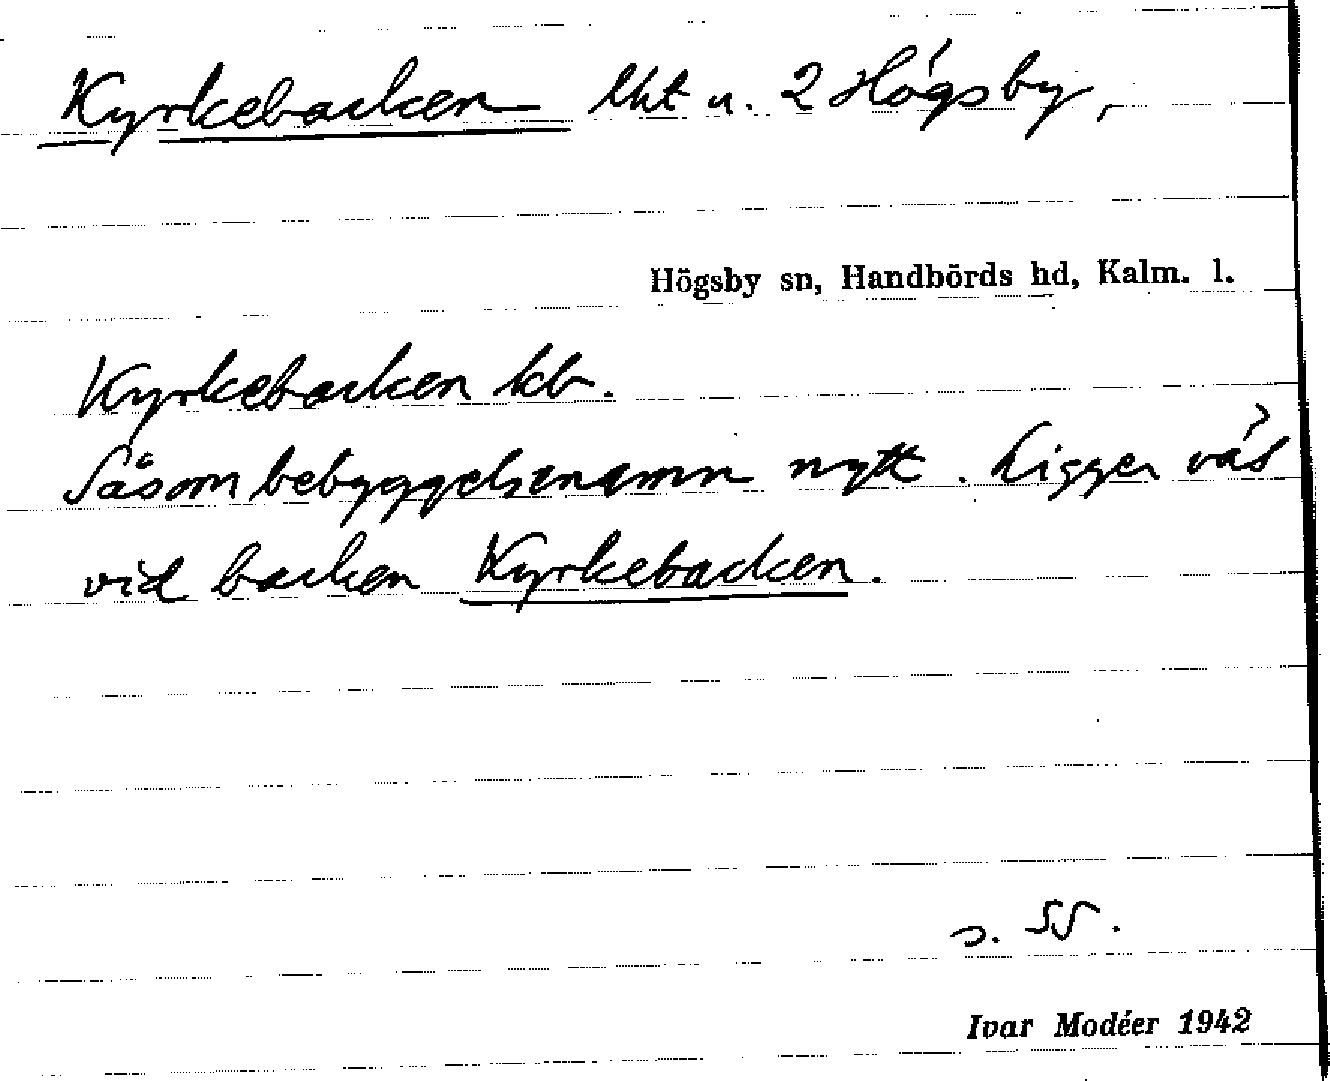 Kyrkebacken lht u. 2 Högsby,
Högsby sn, Handbörds hd, Kalm. l.
Kyrkebacken kb.
Såsom bebyggelsenamn nytt. Ligger
vid backen Kyrkebacken.
Ivar Modéer 1942